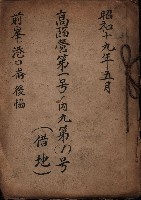 昭和十九年五月
高陽營第一号ノ内九第八号
(借地)
前峯、港口青、後協